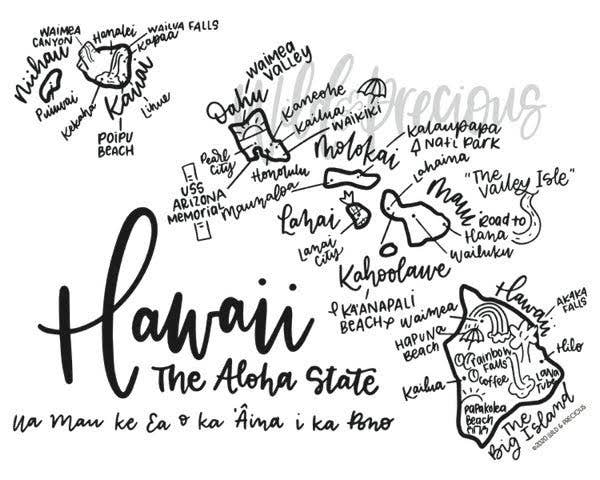 WAIMEA CANYON
Hanalei
WAILUA FALLS
Kapaa
Niihau
Kauai
Puuwai
Kekaha
Lihue
POIPU BEACH
WAIMEA VALLEY
Oahu
Kaneohe
Kailua
WAIKIKI
Pearl City
Honolulu
USS ARIZONA MEMORIAL
Wild & Precious
Molokai
Kalaupapa
Nat'l Park
Maunaloa
Lahaina
Maui
"The Valley Isle"
Road to Hana
Wailuku
Lanai
Lanai City
Kahoolawe
KA'ANAPALI BEACH
Hawaii
The Aloha State
Ua Mau ke Ea o ka 'Āina i ka Pono
Hawaii
Waimea
HAPUNA BEACH
Kailua
AKAKA FALLS
Hilo
Rainbow Falls
Coffee
LAVA TUBE
PAPAKOLEA BEACH
The Big Island
©2020 WILD & PRECIOUS